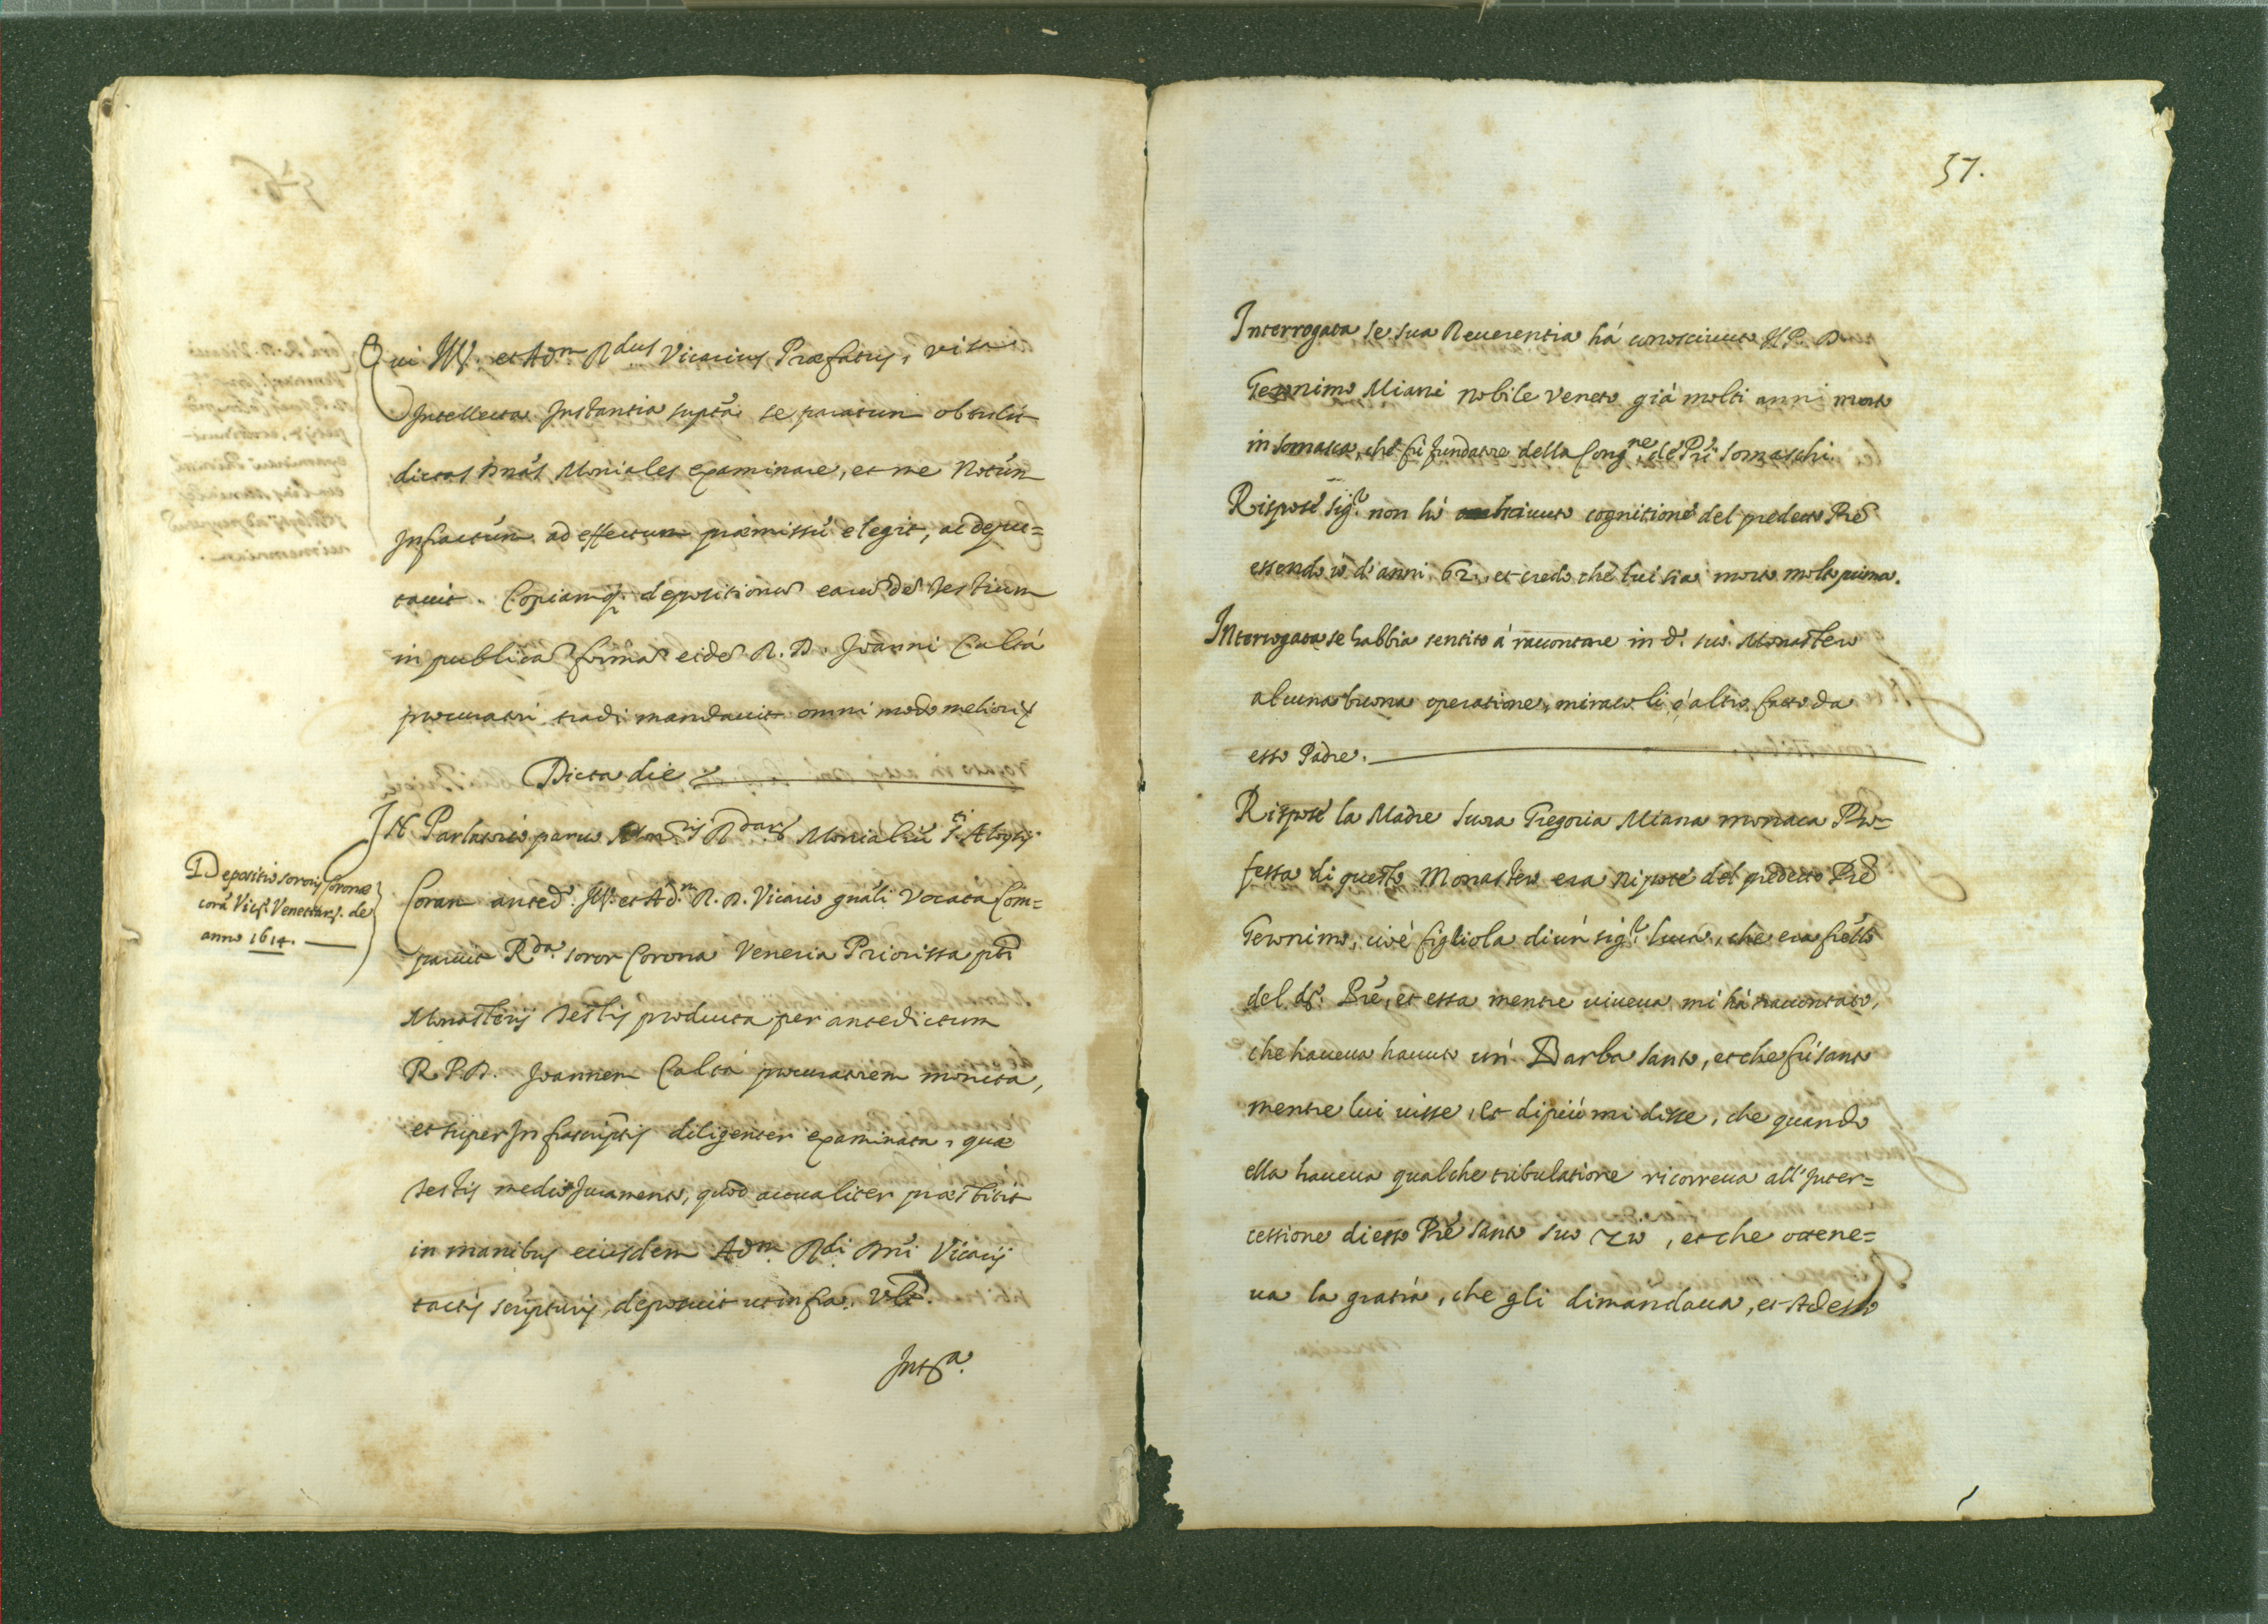 Qui Ill. et Adm. Rdus Vicarius Præfatus, visa,
Intellecta Instantia suptã se paratum obtulit
dictas Dnas Moniales examinare, et me Notũm
Infractũm ad effectum præmissũ elegit, ac depu=
tauit. Copiamq. depositionis earũdẽ testium
in publica forma eidẽ R. D. Joanni Calta
procuratori tradi mandauit omni modo meliori
Dicta die
IN Parlatorio paruo Mon.rij R.dar. Monialiũ S.ti Aloysij
Depositio sororis Coronæ
corã Vic. Venetiar. de
anno 1614.
Coram anted. Ill. et Ad.m R. D. Vicario gnãli Vocata Com=
paruit R.da soror Corona Veneria Priorissa pti
Monasterij testis producta per antedictum
R. P. D. Joannem Calta procuratorem monita,
et super Infrascriptis diligenter examinata, quæ
testis medio Juramento, quod actualiter præstitit
in manibus eiusdem Adm. Rdi. Dni Vicarij
tactis scripturis, deposuit ut infra. Vlt.
Int.a
57.
Interrogata se sua Reuerentia há conosciuto Il P. D.
Geronimo Miani nobile veneto giá molti anni morto
in somasca, che fú fundatore della Cong.ne de Pri Somaschi.
Rispose sig.r non hò cognitione del predetto Prẽ
essendo iò di anni 62. et credo che lui sia morto molto prima.
Interrogata se habbia sentito á raccontare in d. suo Monasterio
alcuna buona operatione, miracoli, ó altro fatto da
esso Padre.
Rispose la Madre Suora Gregoria Miana monaca Pro=
fessa di questo Monasterio era Nipote del predetto Prẽ
Geronimo, cioè figliola di un sig.r Luca, che era frẽllo
del d. Prẽ, et essa mentre uiueua mi há raccontato,
che haueua hauuto un Barba santo, et che fú santo
mentre lui uisse, et di più mi disse, che quando
ella haueua qualche tribulatione ricorreua all'Inter=
cessione di esso Prẽ santo suo zio, et che ottene=
ua la gratia, che gli dimandaua, et Adesso